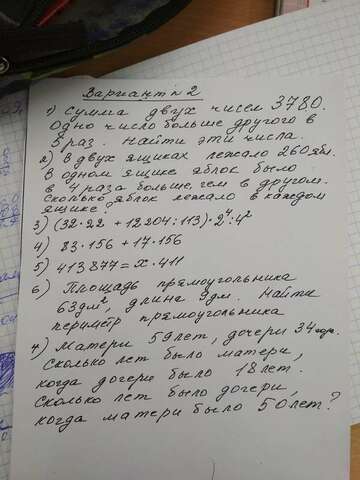 Вариант № 2
1) Сумма двух чисел 3780.
Одно число больше другого в
5 раз. Найти эти числа.
2) В двух ящиках лежало 260 ябл.
В одном ящике яблок было
в 4 раза больше, чем в другом.
Сколько яблок лежало в каждом
ящике?
3) (32·22 + 12204:113)·2⁴:4²
4) 83·156 + 17·156
5) 413877 = x·411
6) Площадь прямоугольника
63дм², длина 9дм. Найти
периметр прямоугольника
7) Матери 59лет, дочери 34
Сколько лет было матери,
когда дочери было 18 лет.
Сколько лет было дочери,
когда матери было 50лет?